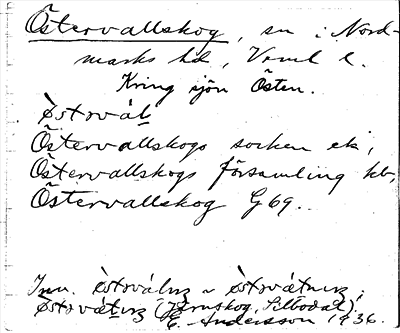 Östervallskog, sn i Nord-
marks hd, Verml l.
Kring sjön Östen.
òstrvál
Östervallskogs socken ek,
Östervallskogs församling kb,
Östervallskog G 69.
Inv. òstrválnz ~ òstrvátnz;
òstrvátnz (Järnskog, Silbodal),
E. Andersson 1936.